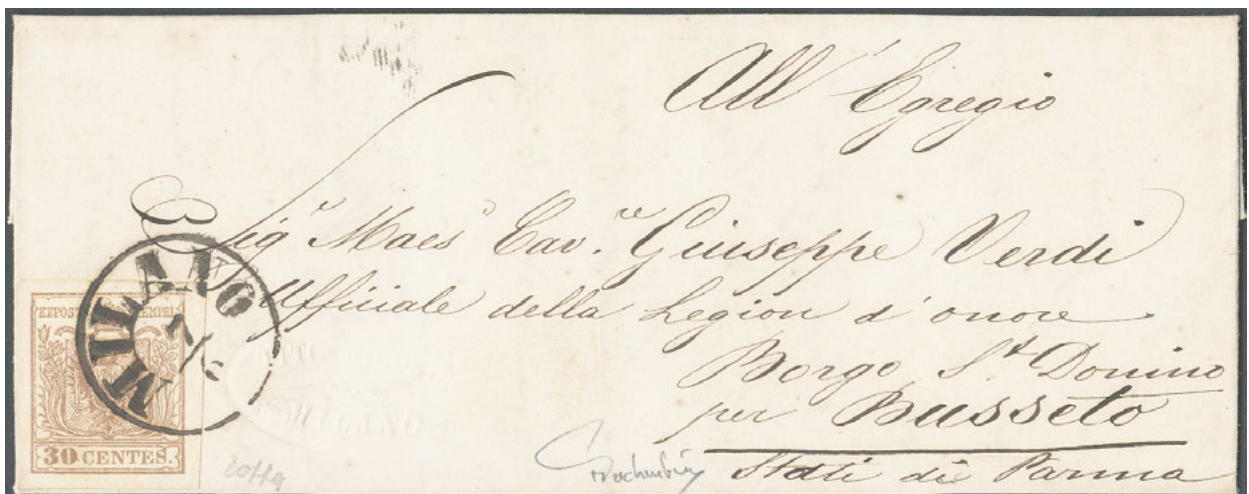 All' Egregio
Sig.r Maes.o Cav.re Giuseppe Verdi
Uffiziale della Legion d'onore
Borgo S.t Donino
per Busseto
Stati di Parma
MILANO
7/
KKPOST STEMPEL
30 CENTES.